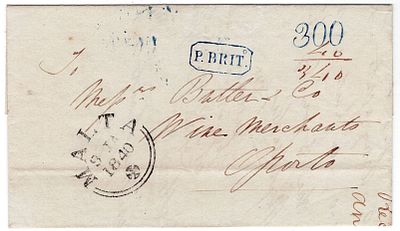 300
P. BRIT.
40
340
To
Messrs Butler & Co
Wine Merchants
Oporto
MALTA
1840